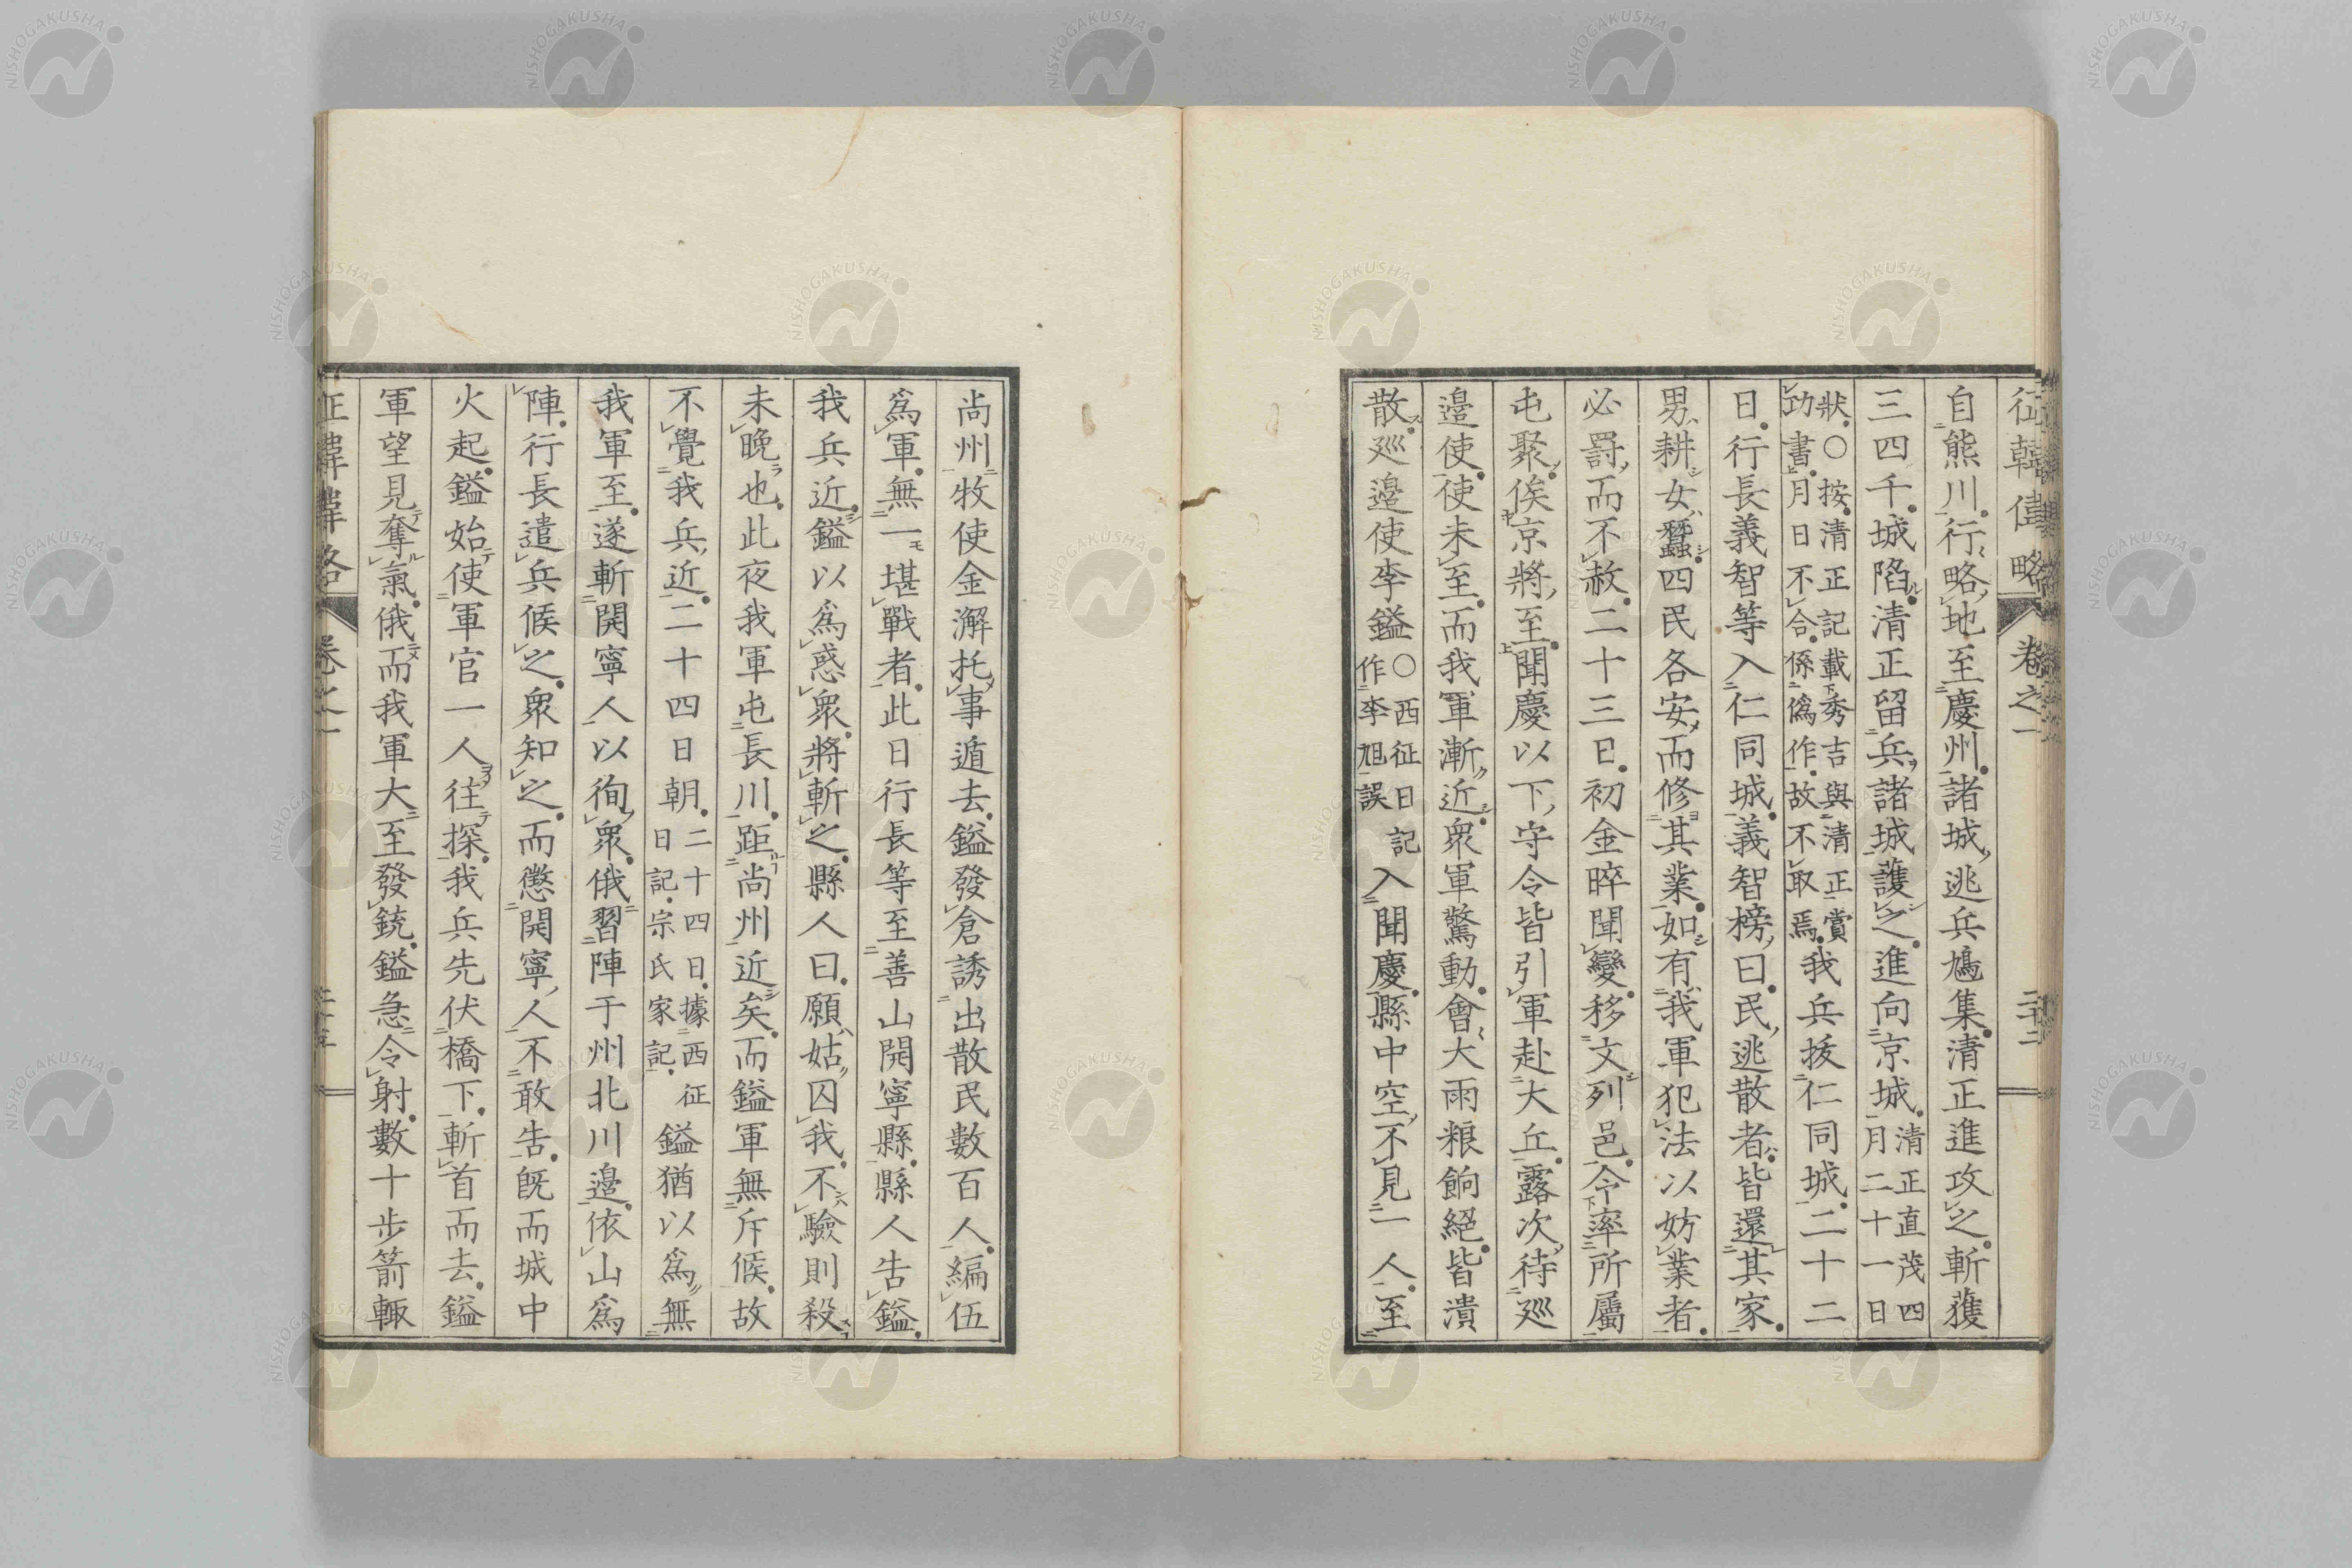 征韓偉略 卷之一 二十二
自熊川行略地至慶州諸城逃兵鳩集清正進攻之斬獲
三四千城陷清正留兵諸城護之進向京城清正直茂四月二十一日
狀○按清正記載秀吉與清正賞功書月日不合係僞作故不取焉我兵拔仁同城二十二
日行長義智等入仁同城義智榜曰民逃散者皆還其家
男耕女蠶四民各安而修其業如有我軍犯法以妨業者
必罸而不赦二十三日初金睟聞變移文列邑令率所屬
屯聚俟京將至聞慶以下守令皆引軍赴大丘露次待巡
邉使使未至而我軍漸近衆軍驚動會大雨粮餉絕皆潰
散巡邉使李鎰○西征日記作李旭誤入聞慶縣中空不見一人至
尚州牧使金澥托事遁去鎰發倉誘出散民數百人編伍
爲軍無一堪戰者此日行長等至善山開寧縣縣人告鎰
我兵近鎰以爲惑衆將斬之縣人曰願姑囚我不驗則殺
未晚也此夜我軍屯長川距尚州近矣而鎰軍無斥候故
不覺我兵近二十四日朝二十四日據西征日記宗氏家記鎰猶以爲無
我軍至遂斬開寧人以徇衆俄習陣于州北川邉依山爲
陣行長遣兵候之衆知之而懲開寧人不敢告旣而城中
火起鎰始使軍官一人往探我兵先伏橋下斬首而去鎰
軍望見奪氣俄而我軍大至發銃鎰急令射數十步箭輙